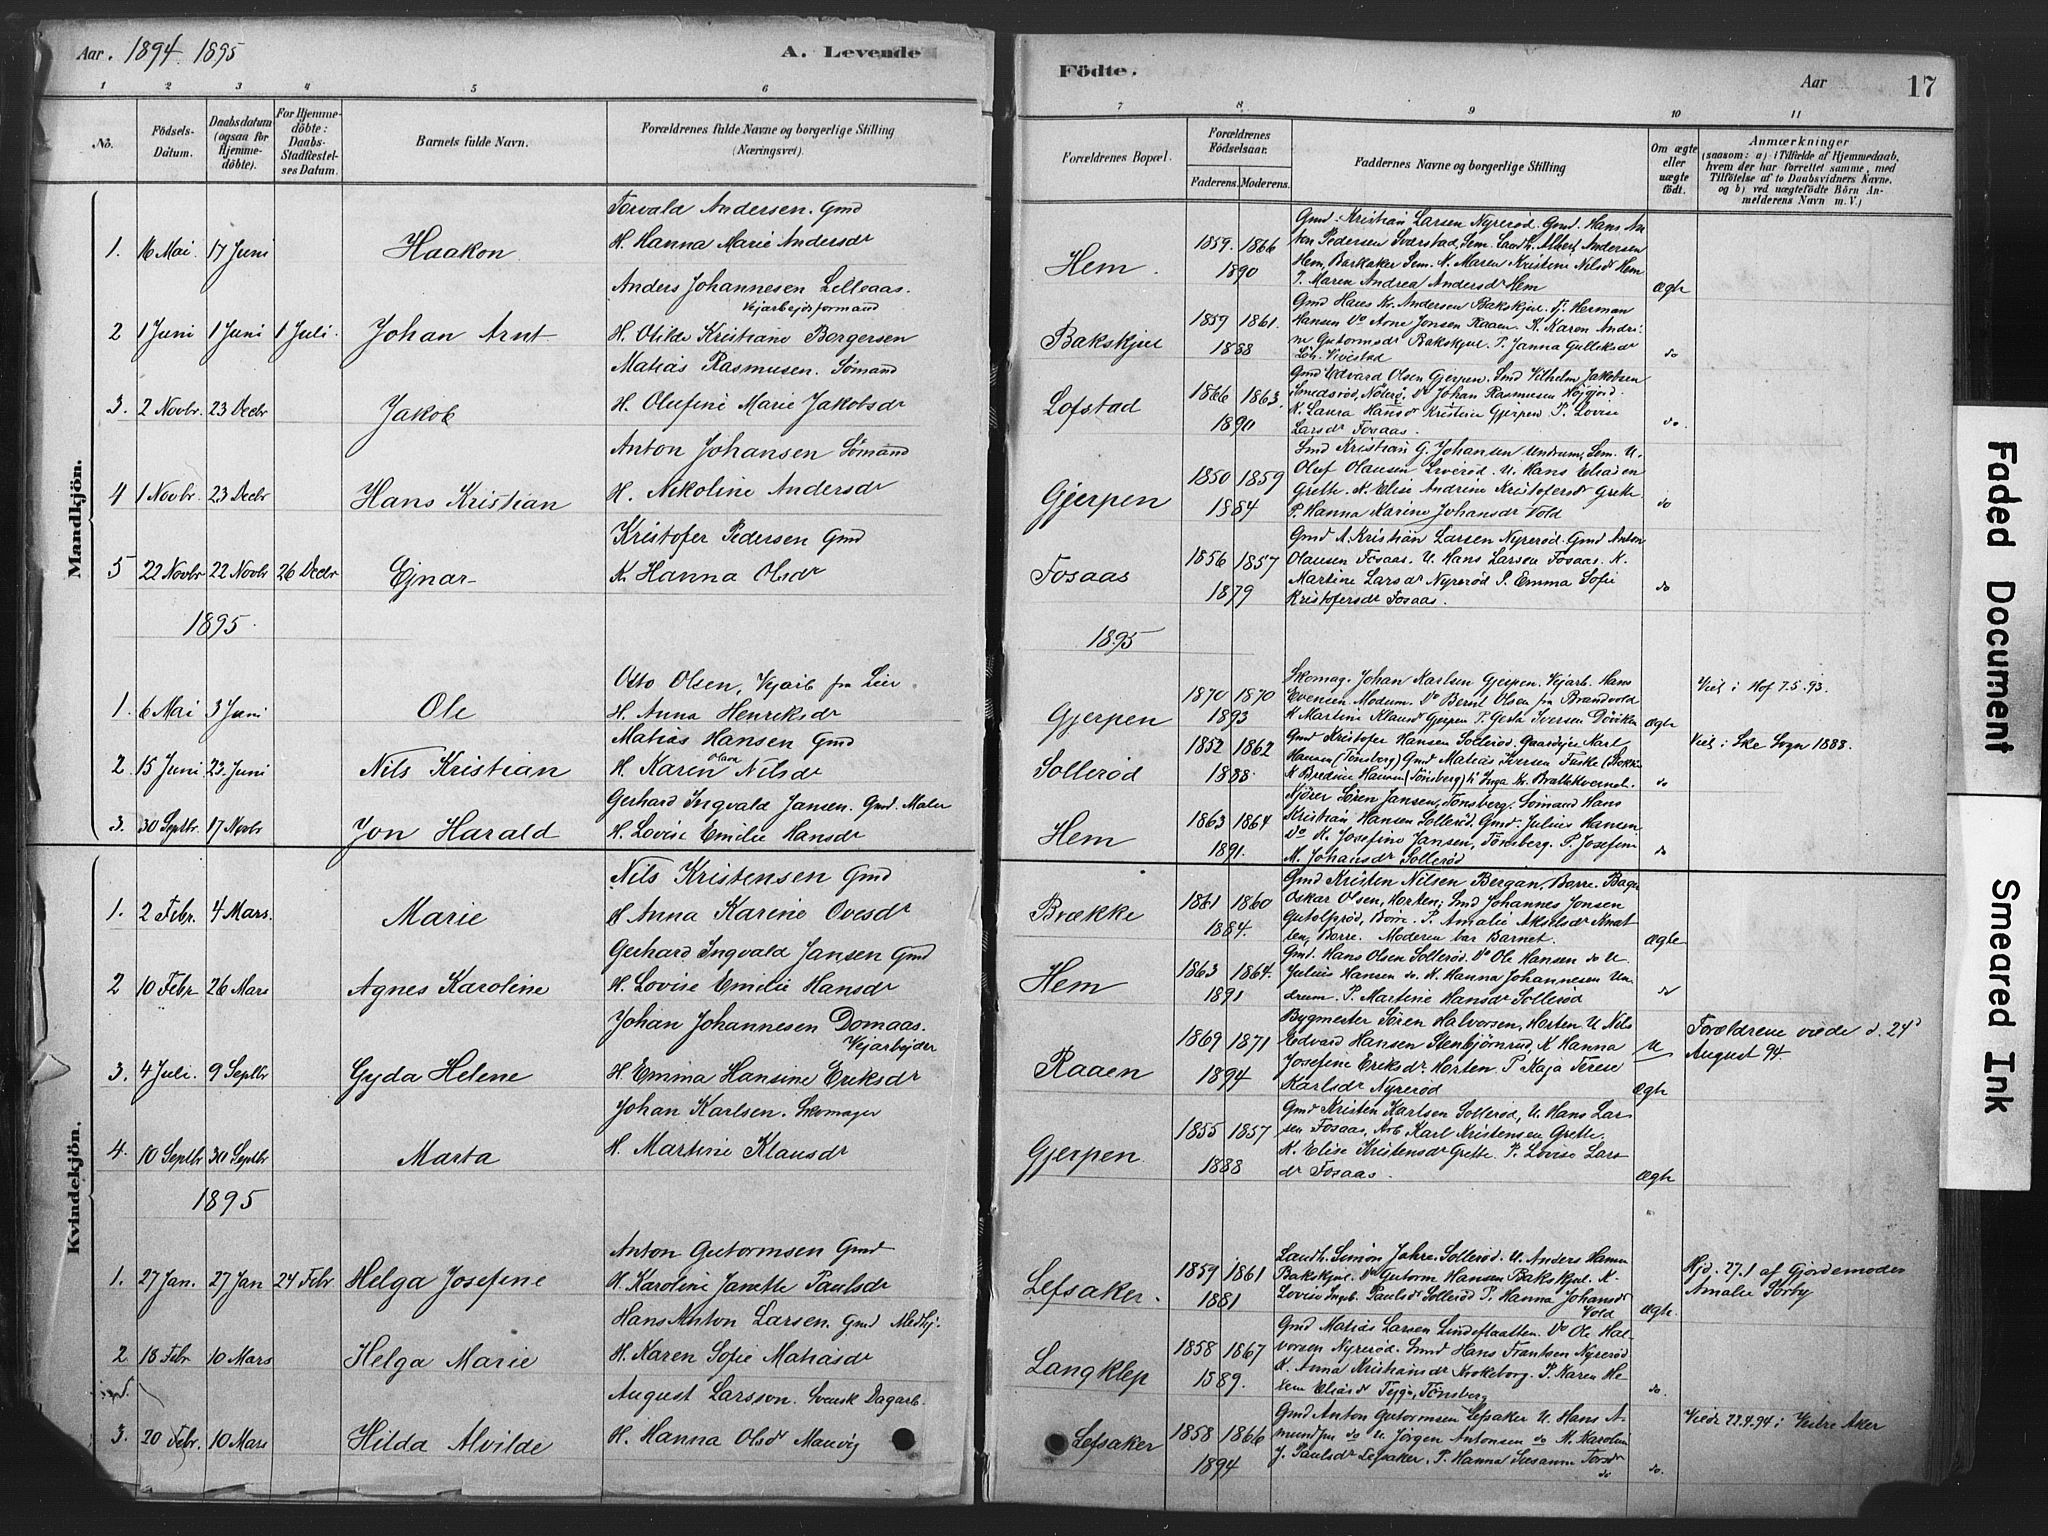 Aar. 1894. 1895
A. Levende
Födte.
Aar
17
1
2
3
4
5
6
7
8
9
10
11
No.
Födsels-
Datum.
Daabsdatum
(ogsaa for
Hjemme-
döbte).
For Hjemme-
döbte:
Daabs-
Stadfæstel-
ses Datum.
Barnets fulde Navn.
Forældrenes fulde Navne og borgerlige Stilling
(Næringsvei).
Forældrenes Bopæl.
Forældrenes
Födselsaar.
Faderens.
Moderens.
Faddernes Navne og borgerlige Stilling
Om ægte
eller
uægte
födt.
Anmærkninger
(saasom: a) i Tilfælde af Hjemmedaab,
hvem der har forrettet samme, med
Tilföielse af to Daabsvidners Navne,
og b) ved uægtefödte Börn An-
melderens Navn m. V.)
Mandkjön.
Torvald Andersen. Gmd
1. 16 Mai 17 Juni Haakon H. Hanna Marie Andersdr
Hem. 1859. 1866 1890
Gmd. Kristian Larsen Nyrerød. Gmd. Hans An
ton Pedersen Sverstad, Sem. Landh. Albert Andersen
Hem, Barkaker Sem. K. Maren Kristine Nilsdr Hem
P. Maren Andrea Andersdr Hem
Ægte
Anders Johannesen Lilleaas.
Vejarbejdsformand
2 1 Juni 1 Juni 1 Juli. Johan Arnt H. Otilde Kristiane Borgersen
Bakskjul 1859 1861. 1888
Gmd Hans Kr. Andersen Bakskjul. Tj. Herman
Hansen Do Arne Jonsen Raaen. K. Karen Andri-
ne Gutormsdr Bakskjul. P. Janna Gulliksdr
Löh. Vivestad
do
Matias Rasmusen. Sømand
3. 2 Novbr. 23 Decbr Jakob H. Olufine Marie Jakobsdr
Lofstad 1866 1863. 1890
Gmd Edvard Olsen Gjerpen. Smd Vilhelm Jakobsen
Smedsrød, Nøterø. Do Johan Rasmusen Højgjord.
K. Laura Hansdr Kristine Gjerpen P. Lovise
Larsdr Fosaas.
do.
Anton Johansen Sømand
4 1 Novbr. 23 Decbr Hans Kristian H. Nikoline Andersdr
Gjerpen 1850 1859 1884
Smd Kristian G. Johansen Undrum, Sem. U.
Oluf Olausen Liverød. U. Hans Eliasen
Grette. K. Elise Andrine Kristofersdr Grette.
P. Hanna Karine Johansdr Vold
do
Kristofer Pedersen Gmd
5 22 Novbr 22 Novbr 26 Decbr Ejnar K. Hanna Olsdr
Fosaas 1856 1857 1879
Gmd A. Kristian Larsen Nyrerød. Gmd Anton
Olausen Fosaas. U. Hans Larsen Fosaas. K.
Martine Larsdr Nyrerød P. Emma Sofie
Kristofersdr Fosaas.
do
1895.
1895
Otto Olsen, Vejarb fra Lier.
1. 6 Mai 3 Juni Ole H. Anna Henriksdr
Gjerpen 1870 1870 1893
Skomag. Johan Karlsen Gjerpen. Vejarb. Hans
Evensen Modum. Do Bernt Olsen fra Brandvold
K Martine Klausdr Gjerpen P. Gerta Iversen Döviken
Ægte
Viet i Hof 7.5.93.
Matias Hansen Gmd
2. 15 Juni 23. Juni Nils Kristian H. Karen Olava Nilsdr
Sollerød 1852 1862 1888.
Gmd Kristofer Hansen Sollerød. Gaardejer Karl
Hansen (Tönsberg) Gmd Matias Iversen Fuske (Stokke
K Bredine Hansen (Tönsberg) P. Inga Kr. Brattekvernet.
do
Viet i Ske Sogn 1888.
Gerhard Ingvald Jansen. Gmd. Maler
3. 30 Septbr. 17 Novbr Jon Harald H. Lovise Emilie Hansdr
Hem 1863 1864 1891.
Kjörer Sören Jansen, Tönsberg. Sømand Hans
Kristian Hansen Sollerød. Gmd. Julius Hansen
Do K. Josefine Jansen, Tönsberg. P. Josefine
M. Johansdr Sollerød
do
Kvindekjön.
Nils Kristensen Gmd
1. 2 Febr. 4 Mars. Marie H. Anna Karine Ovesdr
Brække 1861 1860 1884.
Gmd Kristen Nilsen Bergan, Borre. Bager
Oskar Olsen, Horten; Smd Johannes Jonsen
Gutolfsrød, Borre. P. Amalie Akselsdr Smat
len, Borre. Moderen bar Barnet.
Ægte
Gerhard Ingvald Jansen Gmd
2 10 Febr 26 Mars Agnes Karoline H. Lovise Emilie Hansdr
Hem 1863 1864. 1891
Gmd. Hans Olsen Sollerød. Do Ole Hansen do U.
Julius Hansen do. K. Hanna Johannesen Un-
drum. P. Martine Hansdr Sollerød
do
Johan Johannesen Domaas.
Vejarbejder
3. 4 Juli. 9 Septbr Gyda Helene H. Emma Hansine Eriksdr
Raaen 1869 1871 1894
Bygmester Sören Halvorsen, Horten U. Nils
Edvard Hansen Stenbjörnrud, K Hanna
Josefine Eriksdr Horten. P Kaja Terese
Karlsdr Nyrerød
U
Ægte
Forældrene viede d. 24d
August 94
Johan Karlsen. Skomager
4. 10 Septbr 30 Septbr Marta H. Martine Klausdr
Gjerpen 1855 1857 1888
Gmd Kristen Karlsen Sollerød, U. Hans Lar-
sen Fosaas, Arb Karl Kristensen Grette.
K. Elise Kristensdr Grette. P. Lovise Lars
dr Fosaas.
Ægte
1895
Anton Gutormsen Gmd
1. 27 Jan. 27 Jan 24 Febr. Helga Josefine H. Karoline Janette Paulsdr
Lefsaker. 1859 1861 1881
Landh. Simon Jahre. Sollerød. U. Anders Hansen
Bakskjul. Do Gutorm Hansen Bakskjul. K.
Lovise Ingeb. Paulsdr Sollerød P. Hanna Johansdr
Vold
Ægte.
Hjd. 27.1 af Gjordemoder
Amalie Sörby
Hans Anton Larsen. Gmd Medhj.
2 18 Febr 10 Mars Helga Marie H. Karen Sofie Matiasdr
Langklep 1858 1867 1889.
Gmd Matias Larsen Lindeflaatten. Do Ole Hal-
vorsen Nyrerød. Smd Hans Frantsen Nyrerød
K. Anna Kristiansdr Krokeborg. P. Karen He-
lene Eliasdr Teige, Tönsberg
do.
August Larsson. Svensk Dagarb.
3. 20 Febr. 10 Mars Hilda Alvilde H. Hanna Olsdr Mauvig
Lefsaker 1858 1866 1894
Gmd Anton Gutormsen Lefsaker U. Hans A-
mundsen do U Jörgen Antonsen do K. Karoline
J. Paulsdr Lefsaker. P. Hanna Susanne Torsdr
do
do.
Viede 22.4.94 i Vestre Aker
Faded Document
Smeared Ink